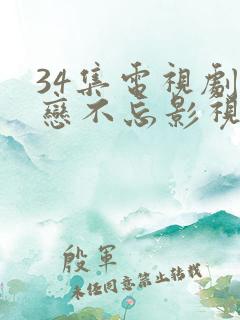 34集電視劇
戀不忘影視
殷軍
未經同意禁止轉載